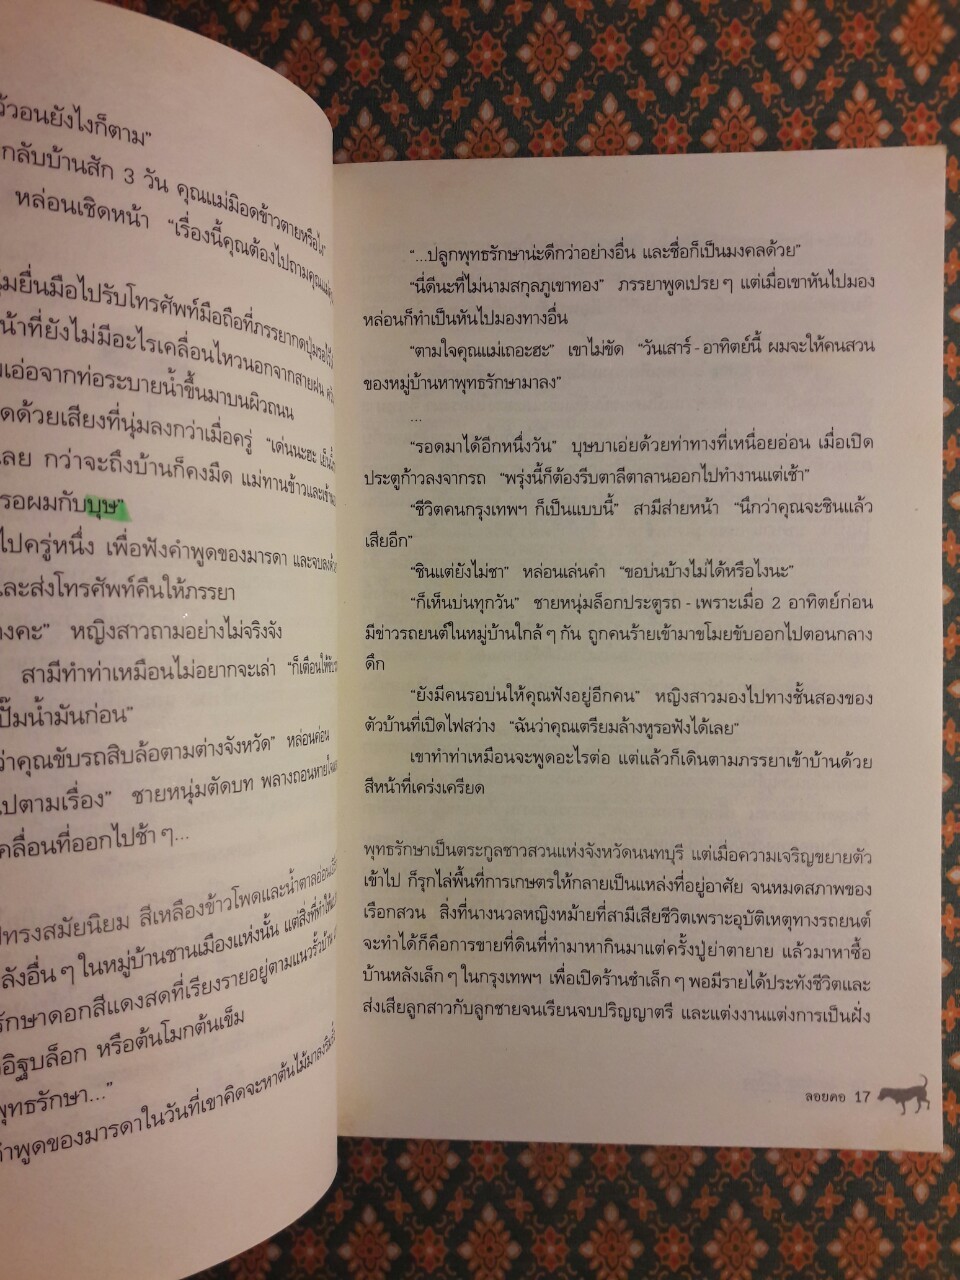 ว้วอนยังไงก็ตาม”
กลับบ้านสัก 3 วัน คุณแม่มิอดข้าวตายหรือไง”
หล่อนเชิดหน้า “เรื่องนี้คุณต้องไปถามคุณแม่
มยื่นมือไปรับโทรศัพท์มือถือที่ภรรยากดปุ่มรอไว้
น้าที่ยังไม่มีอะไรเคลื่อนไหวนอกจากสายฝน
เอ่อจากท่อระบายน้ำขึ้นมาบนผิวถนน
ดด้วยเสียงที่นุ่มลงกว่าเมื่อครู่ “เด่นนะฮะ
เลย กว่าจะถึงบ้านก็คงมืด แม่ทานข้าวและเข้า
รอผมกับบุษ”
ไปครู่หนึ่ง เพื่อฟังคำพูดของมารดา และจบลงด้วย
และส่งโทรศัพท์คืนให้ภรรยา
งคะ” หญิงสาวถามอย่างไม่จริงจัง
สามีทำท่าเหมือนไม่อยากจะเล่า “ก็เตือนให้ขับ
ปั๊มน้ำมันก่อน”
ว่าคุณขับรถสิบล้อตามต่างจังหวัด” หล่อนค่อน
ปตามเรื่อง” ชายหนุ่มตัดบท พลางถอนหายใจ
คลื่อนที่ออกไปช้า ๆ...
ทรงสมัยนิยม สีเหลืองข้าวโพดและน้ำตาลอ่อน
ลังอื่น ๆ ในหมู่บ้านชานเมืองแห่งนั้น แต่สิ่งที่ทำให้
รักษาดอกสีแดงสดที่เรียงรายอยู่ตามแนวรั้วบ้าน
อิฐบล็อก หรือต้นโมกต้นเข็ม
พุทธรักษา...”
คำพูดของมารดาในวันที่เขาคิดจะหาต้นไม้มาลงริมรั้ว
“...ปลูกพุทธรักษาน่ะดีกว่าอย่างอื่น และชื่อก็เป็นมงคลด้วย”
“นี่ดีนะที่ไม่นามสกุลภูเขาทอง” ภรรยาพูดเปรย ๆ แต่เมื่อเขาหันไปมอง
หล่อนก็ทำเป็นหันไปมองทางอื่น
“ตามใจคุณแม่เถอะฮะ” เขาไม่ขัด “วันเสาร์ - อาทิตย์นี้ ผมจะให้คนสวน
ของหมู่บ้านหาพุทธรักษามาลง”
...
“รอดมาได้อีกหนึ่งวัน” บุษบาเอ่ยด้วยท่าทางที่เหนื่อยอ่อน เมื่อเปิด
ประตูก้าวลงจากรถ “พรุ่งนี้ก็ต้องรีบตาลีตาลานออกไปทำงานแต่เช้า”
“ชีวิตคนกรุงเทพฯ ก็เป็นแบบนี้” สามีส่ายหน้า “นึกว่าคุณจะชินแล้ว
เสียอีก”
“ชินแต่ยังไม่ชา” หล่อนเล่นคำ “ขอบ่นบ้างไม่ได้หรือไงนะ”
“ก็เห็นบ่นทุกวัน” ชายหนุ่มล็อกประตูรถ - เพราะเมื่อ 2 อาทิตย์ก่อน
มีข่าวรถยนต์ในหมู่บ้านใกล้ ๆ กัน ถูกคนร้ายเข้ามาขโมยขับออกไปตอนกลาง
ดึก
“ยังมีคนรอบ่นให้คุณฟังอยู่อีกคน” หญิงสาวมองไปทางชั้นสองของ
ตัวบ้านที่เปิดไฟสว่าง “ฉันว่าคุณเตรียมล้างหูรอฟังได้เลย”
เขาทำท่าเหมือนจะพูดอะไรต่อ แต่แล้วก็เดินตามภรรยาเข้าบ้านด้วย
สีหน้าที่เคร่งเครียด
พุทธรักษาเป็นตระกูลชาวสวนแห่งจังหวัดนนทบุรี แต่เมื่อความเจริญขยายตัว
เข้าไป ก็รุกไล่พื้นที่การเกษตรให้กลายเป็นแหล่งที่อยู่อาศัย จนหมดสภาพของ
เรือกสวน สิ่งที่นางนวลหญิงหม้ายที่สามีเสียชีวิตเพราะอุบัติเหตุทางรถยนต์
จะทำได้ก็คือการขายที่ดินที่ทำมาหากินมาแต่ครั้งปู่ย่าตายาย แล้วมาหาซื้อ
บ้านหลังเล็ก ๆ ในกรุงเทพฯ เพื่อเปิดร้านชำเล็ก ๆ พอมีรายได้ประทังชีวิตและ
ส่งเสียลูกสาวกับลูกชายจนเรียนจบปริญญาตรี และแต่งงานแต่งการเป็นฝั่ง
ลอยคอ 17